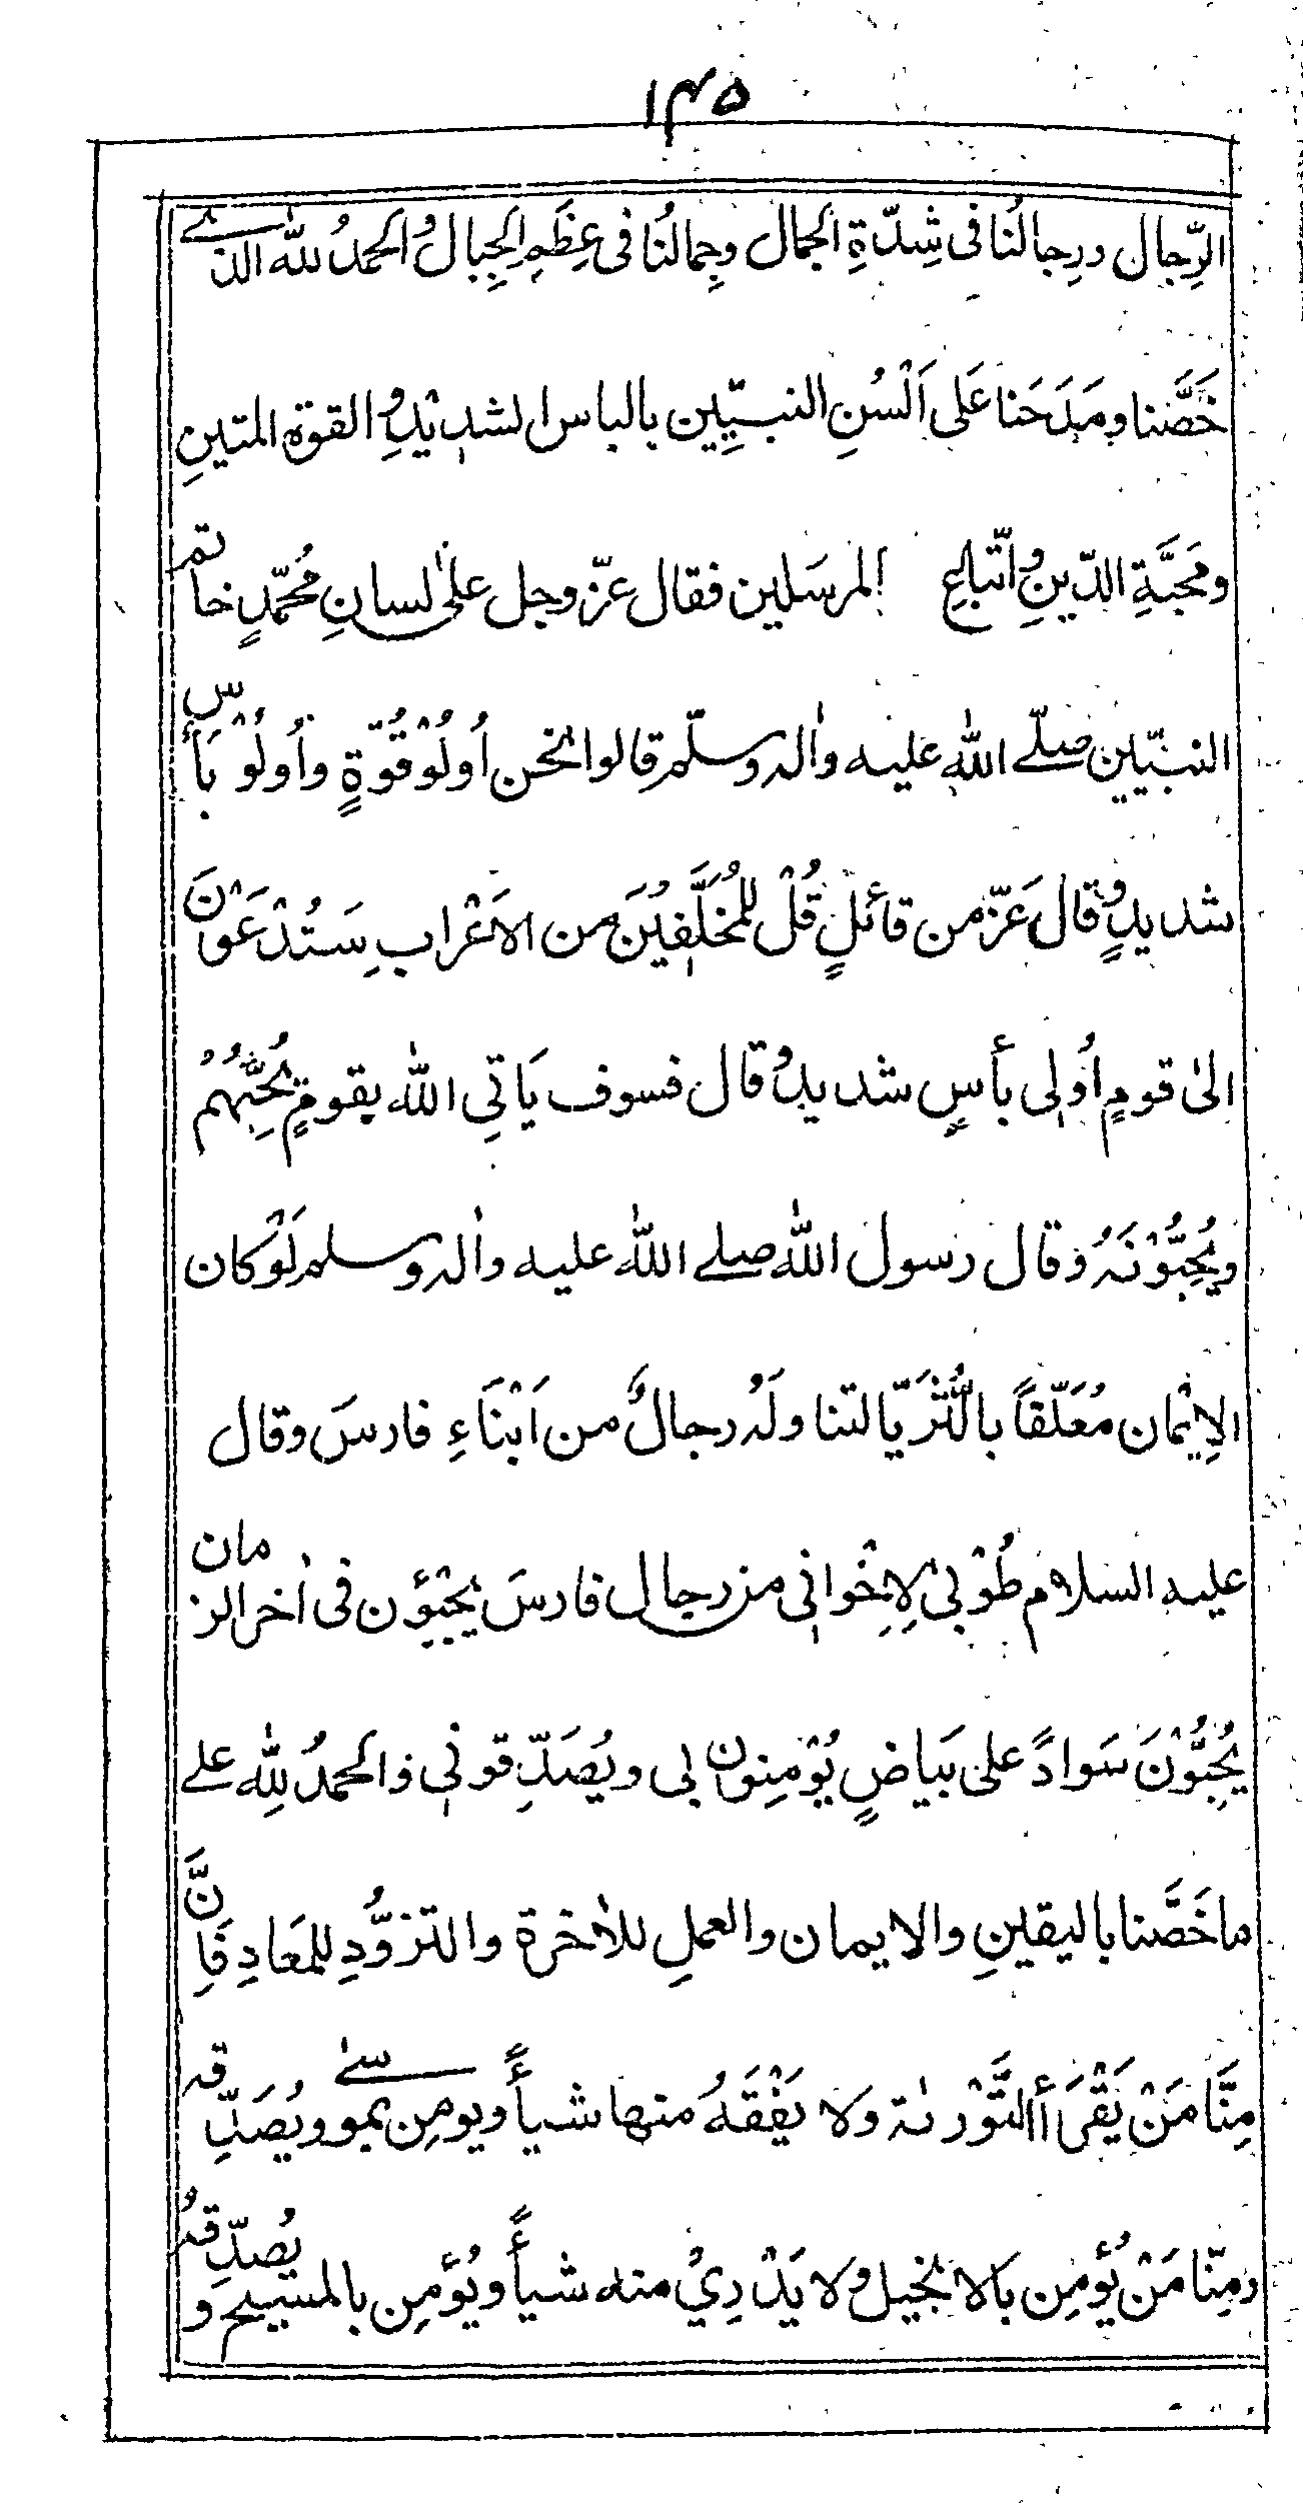 ١٣٥
الرِّجال ورِجالُنا فى شِدّةِ الجمال وجِمالنُا فى عِظَمِ الجِبال وُالحمدُ للّٰه الذے
خَصَّنا ومَدَحَنا عَلى اَلْسُنِ النبيّيِن بالباس الشدِيْدِوُ القوة المتينِ
ومَحبَّةِ الدّينِ وُاتّباعِ المرسَلين فقال عزّ وجل علىٰ لسانِ مُحمّدٍ خاتم
النبيّين صلّے اللّٰه عليه واٰله وسلّم قالوا نحن اُولُوْ قُوّةٍ واُولُوْ بَأسٍ
شديدٍ وُقالَ عَزّ من قائلٍ قُلْ لِلْمُخَلَّفِيْنَ من الاَعْراب سَتُدْعَوْنَ
الىٰ قومٍ اُولِى بأسٍ شديدٍ وُقال فسوف يَاتِى اللّٰه بقومٍ يُحِبُّهُمْ
ويُحِبُّوْنَهُ وَقال رسول اللّٰه صلے اللّٰه عليه واٰله وسلم لَوْكان
الاِيْمان مُعَلّقاً بالثُّرَيّا لتناولَهُ رجالٌ من اَبْنَاءِ فارسَ وقال
عليه السلام طُوْبىٰ لاِخْوانِى من رجال فارسَ يَجِيْؤن فى اٰخر الزمان
يُحِبُّوْنَ سَوادً على بَياضٍ يُؤمِنون بى ويُصَدِّقونِى والحمدُ لِلّٰه علے
ما خَصَّنا باليقينِ والايمان والعملِ للاٰخرة والتزوُّدِ للمَعادِ فَاِنَّ
مِنَّا مَنْ يَقْرَأُ التَّوْرٰىة وَلا يَفْقَهُ منها شيأً ويومِن بموسےٰ ويُصَدِّقه
ومِنّا مَنْ يُؤمِن بَالانجيل وُلا يَدْرِيْ منه شيأً ويُؤمِن بالمسيح ويُصدِّقهُ